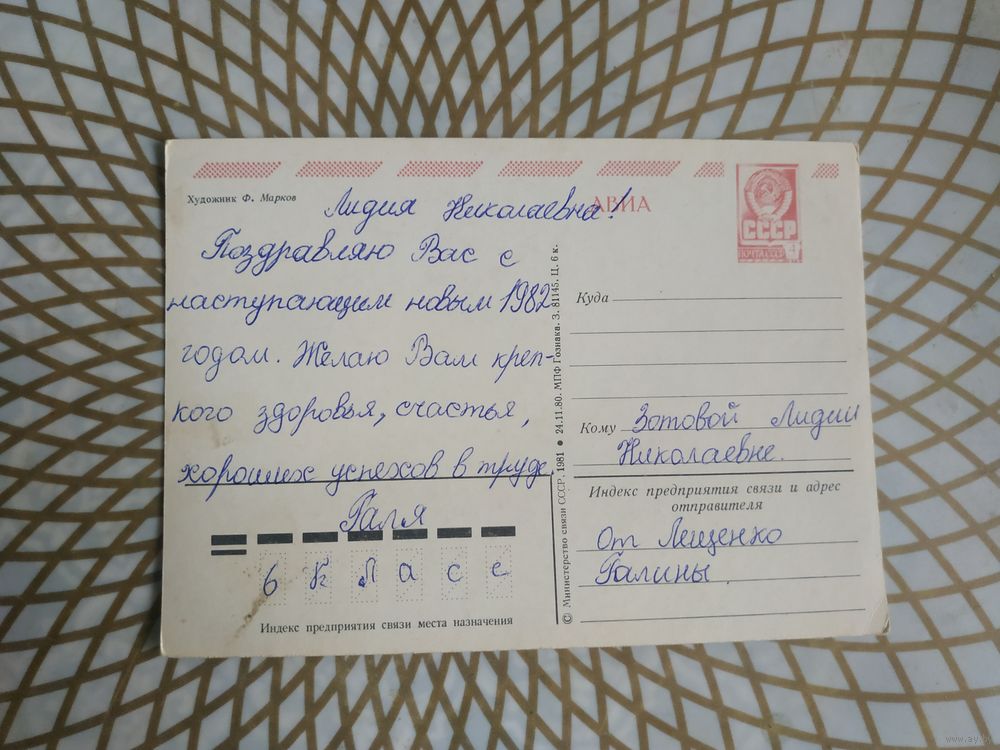 Художник Ф. Марков
АВИА
Лидия Николаевна!
Поздравляю Вас с
наступающим новым 1982
годом. Желаю Вам креп-
кого здоровья, счастья,
хороших успехов в труде.
Галя
6 К л а с с е
Индекс предприятия связи места назначения
© Министерство связи СССР, 1981 • 24.11.80. МПФ Гознака. З. 81145. Ц. 6 к.
СССР
ПОЧТА
Куда
Кому Зотовой Лидии
Николаевне.
Индекс предприятия связи и адрес
отправителя
От Лещенко
Галины.
www.ay.by